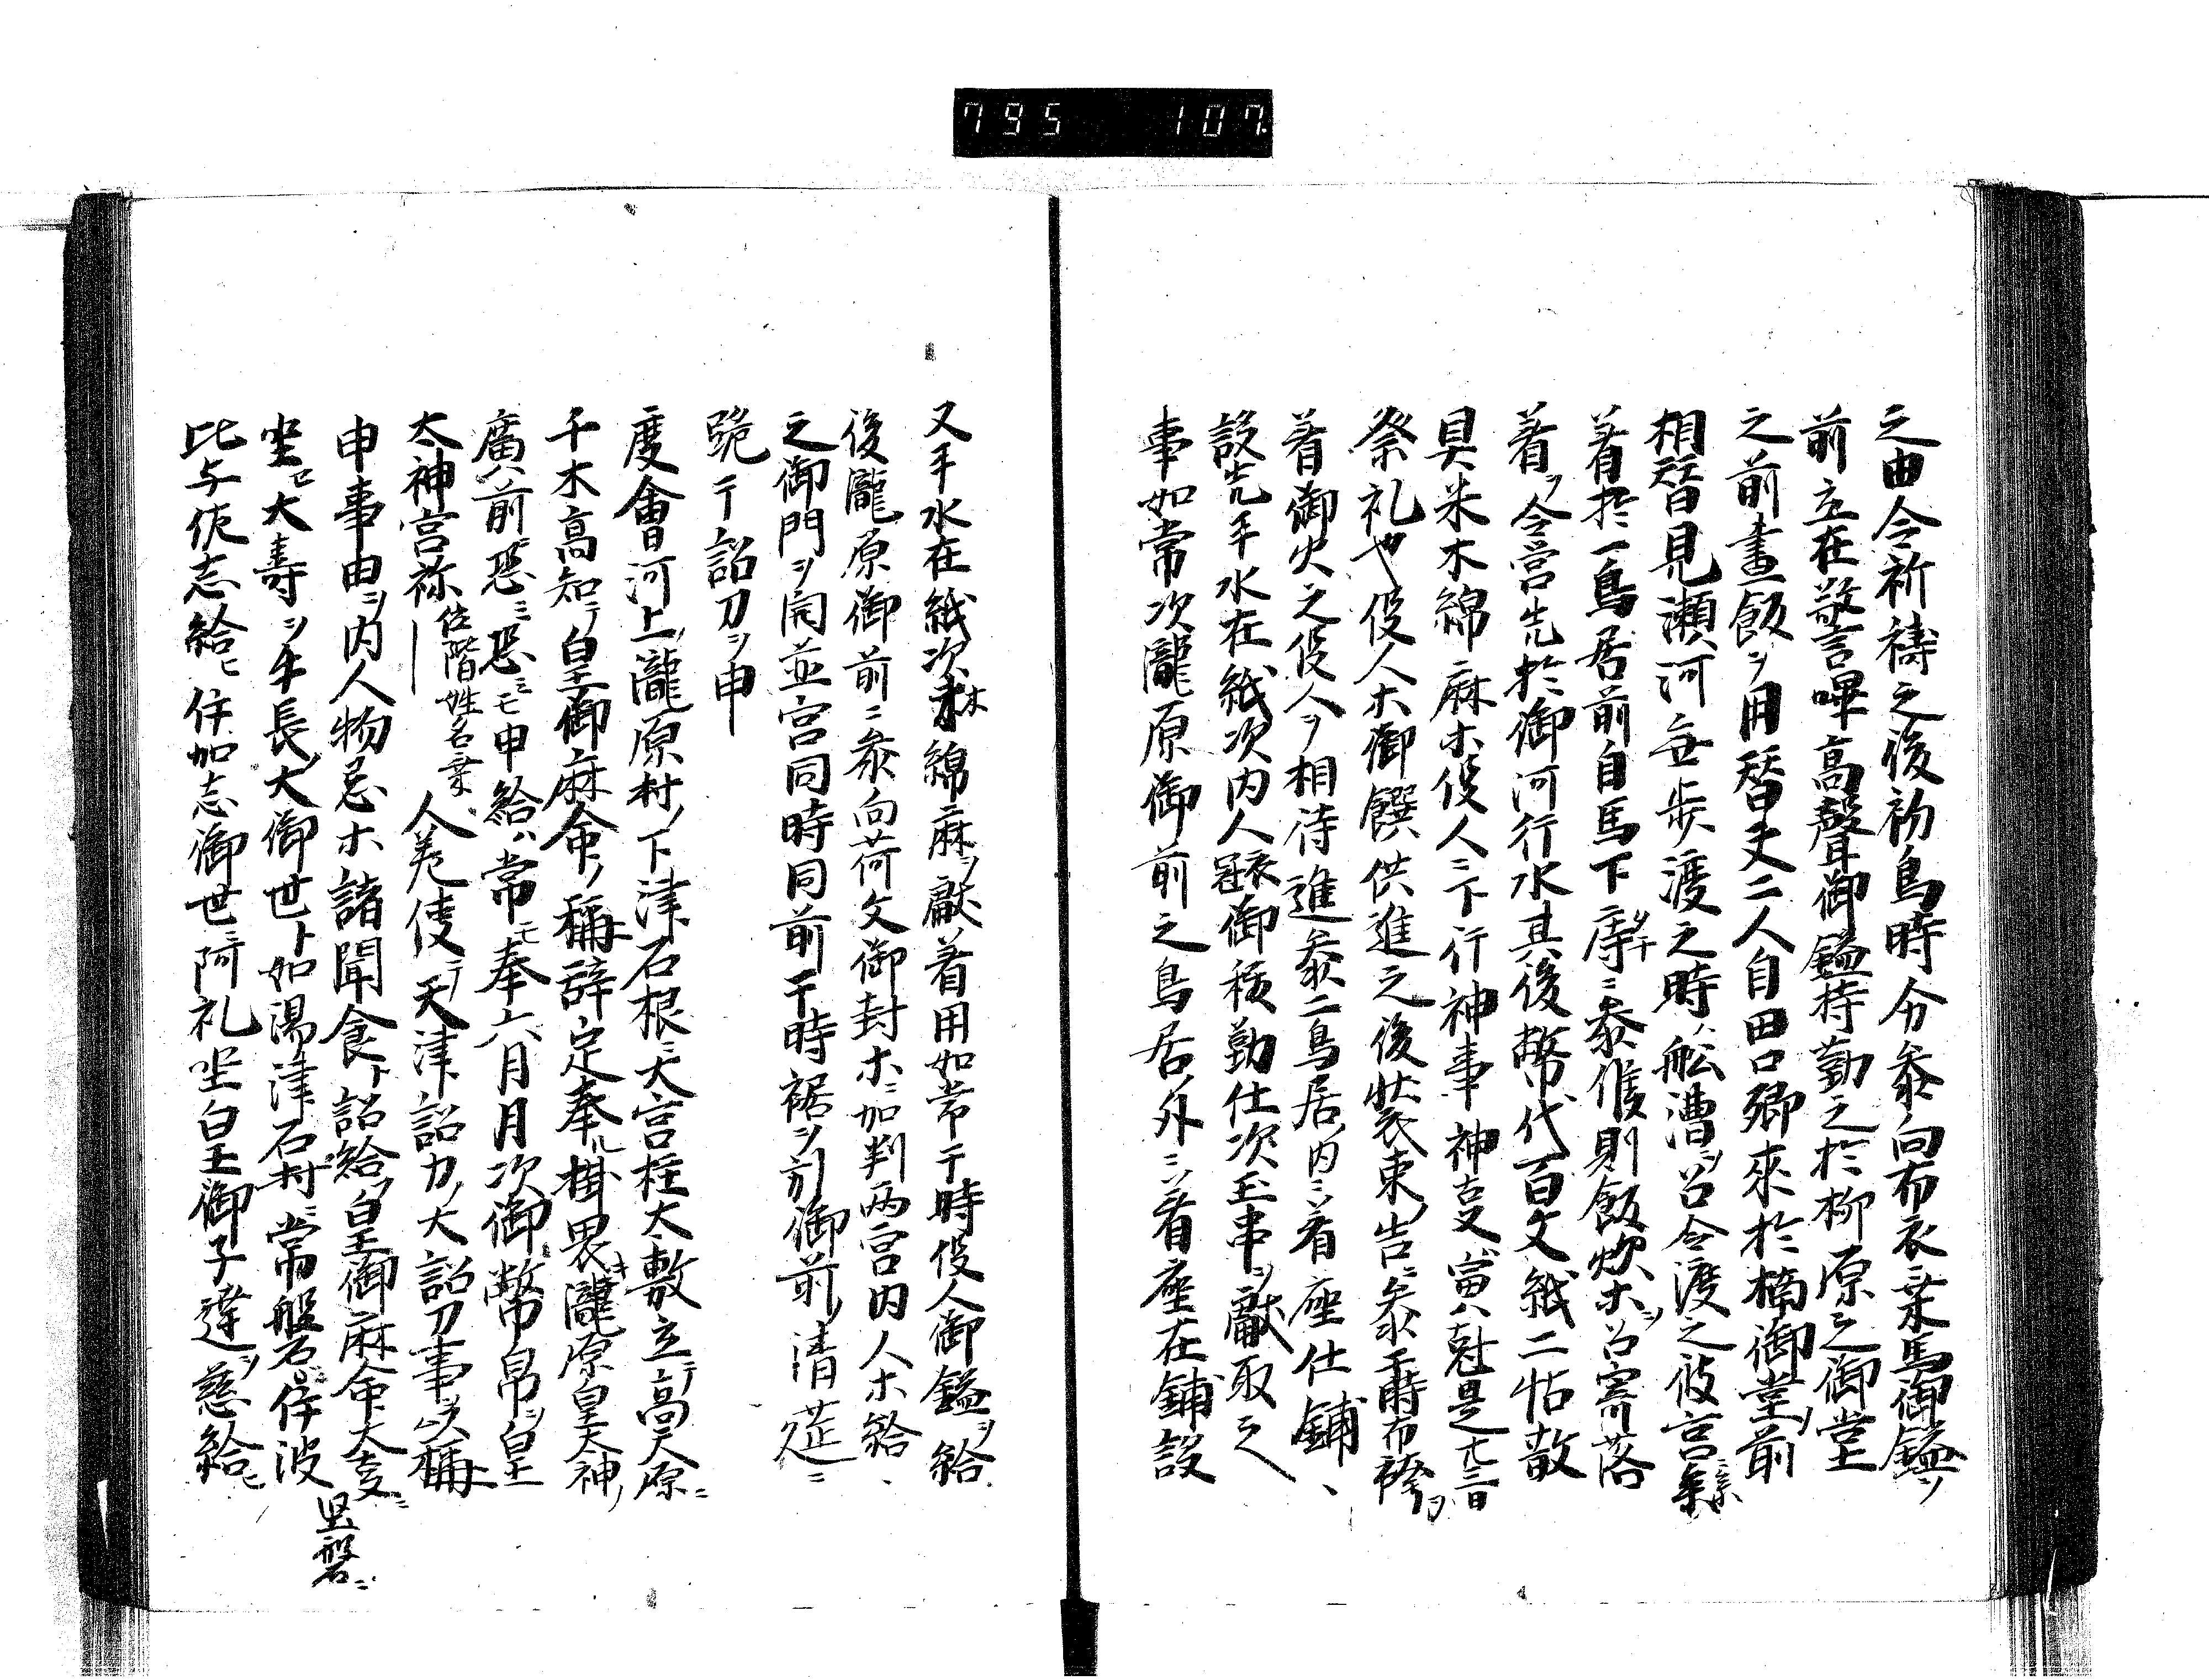 795 107
之由令祈禱之後初鳥時分参向布衣乗馬御鎰ヲ
前立在警言嗶高聲御鎰持勤之於柳原之御堂
之前晝飯ヲ用替夫二人自田口郷來於楠御堂ノ前
相替見瀬河無歩渡之時ハ舩漕ヲ召令渡之彼宮
着於一鳥居前自馬下テ庤ニ参候則飯炊ホヲ召寄落
着ヲ令営先於御河行水其後幣代百文紙二帖散
具米木綿麻ホ役人ニ下行神事神叓寅ハ尅是廿三日
祭礼也役人ホ御饌供進之後装束告ニ参于時布袴ヲ
着御火之役人ヲ相待進参二鳥居ノ内ニ着座仕鋪
設先手水在紙次内人衣冠御秡勤仕次玉串ヲ獻取之
事如常次瀧原御前之鳥居外ニ着座在鋪設
又手水在紙次木綿麻ヲ獻着用如常于時役人御鎰ヲ給
後瀧原御前ニ参向荷文御封ホニ加判両宮内人ホ給
之御門ヲ開並宮同時同前于時裾ヲ引御前ノ清莚ニ
跪テ詔刀ヲ申
度會河上ノ瀧原村ノ下津石根ニ大宮柱太敷立テ高天原ニ
千木高知テ皇御麻命ノ稱辞定奉ル掛畏キ瀧原皇大神ノ
廣前ニ恐ミ恐ミモ申給ハ常モ奉六月月次御幣帛ヲ皇
太神宮祢位階姓名乗人差使テ天津詔刀ノ大詔刀事ヲ以稱
申事由ヲ内人物忌ホ諸聞食ト詔給皇御麻命大叓ニ
坐セ大壽ヲ牛長ノ大御世ト如湯津石村ニ常磐石ニ伴波
堅磐石ニ
比与佐志給ヒ伴加志御世ニ阿礼坐皇御子達ヲ慈給ヒ